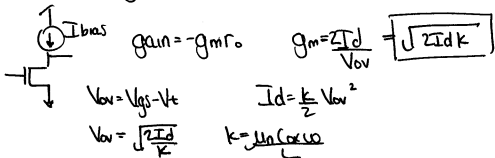 Ibias
gain = -gmro
gm = 2Id/Vov = √2Idk
Vov = Vgs - Vt
Id = k/2 Vov²
Vov = √2Id/k
k = μnCoxω/L